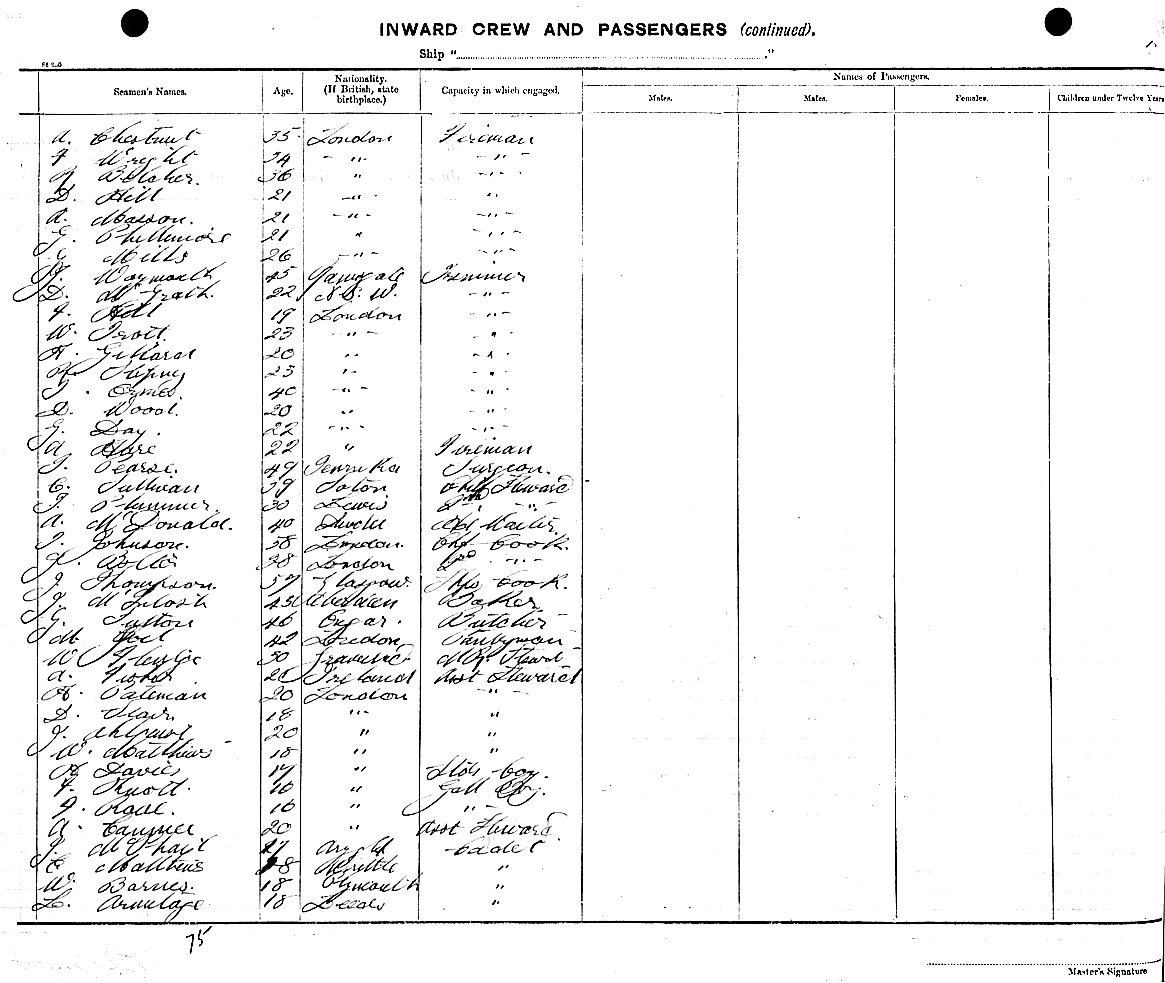 INWARD CREW AND PASSENGERS (continued).
Ship " "
Seamen's Names. Age. Nationality. (If British, state birthplace.) Capacity in which engaged. Names of Passengers.
Males. Males. Females. Children under Twelve Years
A. Chestnut 35 London Fireman
F Wright 34 - " - - " -
Belcher. 36 " - " -
D. Hill 21 - " - "
A. Masson. 21 - " - - " -
G. Phillimore 21 " - " -
Mills 26 - " - - " -
Waymouth 45 Ramsgate Trimmer
D. McGrath. 22 N.S.W. - " -
F. Hill 19 London - " -
W. Trott. 23 - " - - " -
H. Gillard 20 " - " -
23 " - " -
40 - " - - " -
D. Wood. 20 " - " -
G. Day. 22 - " - - " -
A. Hare 22 " Fireman
Pearse. 49 Surgeon.
C. Sullivan 39 Chief Steward
Plummer 30 Lewis 2nd "
A. McDonald. 40
J. Johnson. 38 London. Chf Cook.
38 London 2nd "
J. Thompson. 57 Glasgow. Ships Cook.
J. McIntosh 45 Aberdeen Baker
G. Sutton 46 Ongar. Butcher
M 42 London Pantryman
W 30
20 Ireland Asst Steward
H. Bateman 20 London "
D. Blair 18 " "
J. 20 " "
W. Matthews 18 " "
H Davies 17 " boy.
F. Knott. 16 " Boy.
16 " "
A. 20 " Asst Steward
J. McPhail 17 Cadet
C Matthews 18 "
W. Barnes. 18 Plymouth "
L. Armitage 18 Leeds "
75
Master's Signature